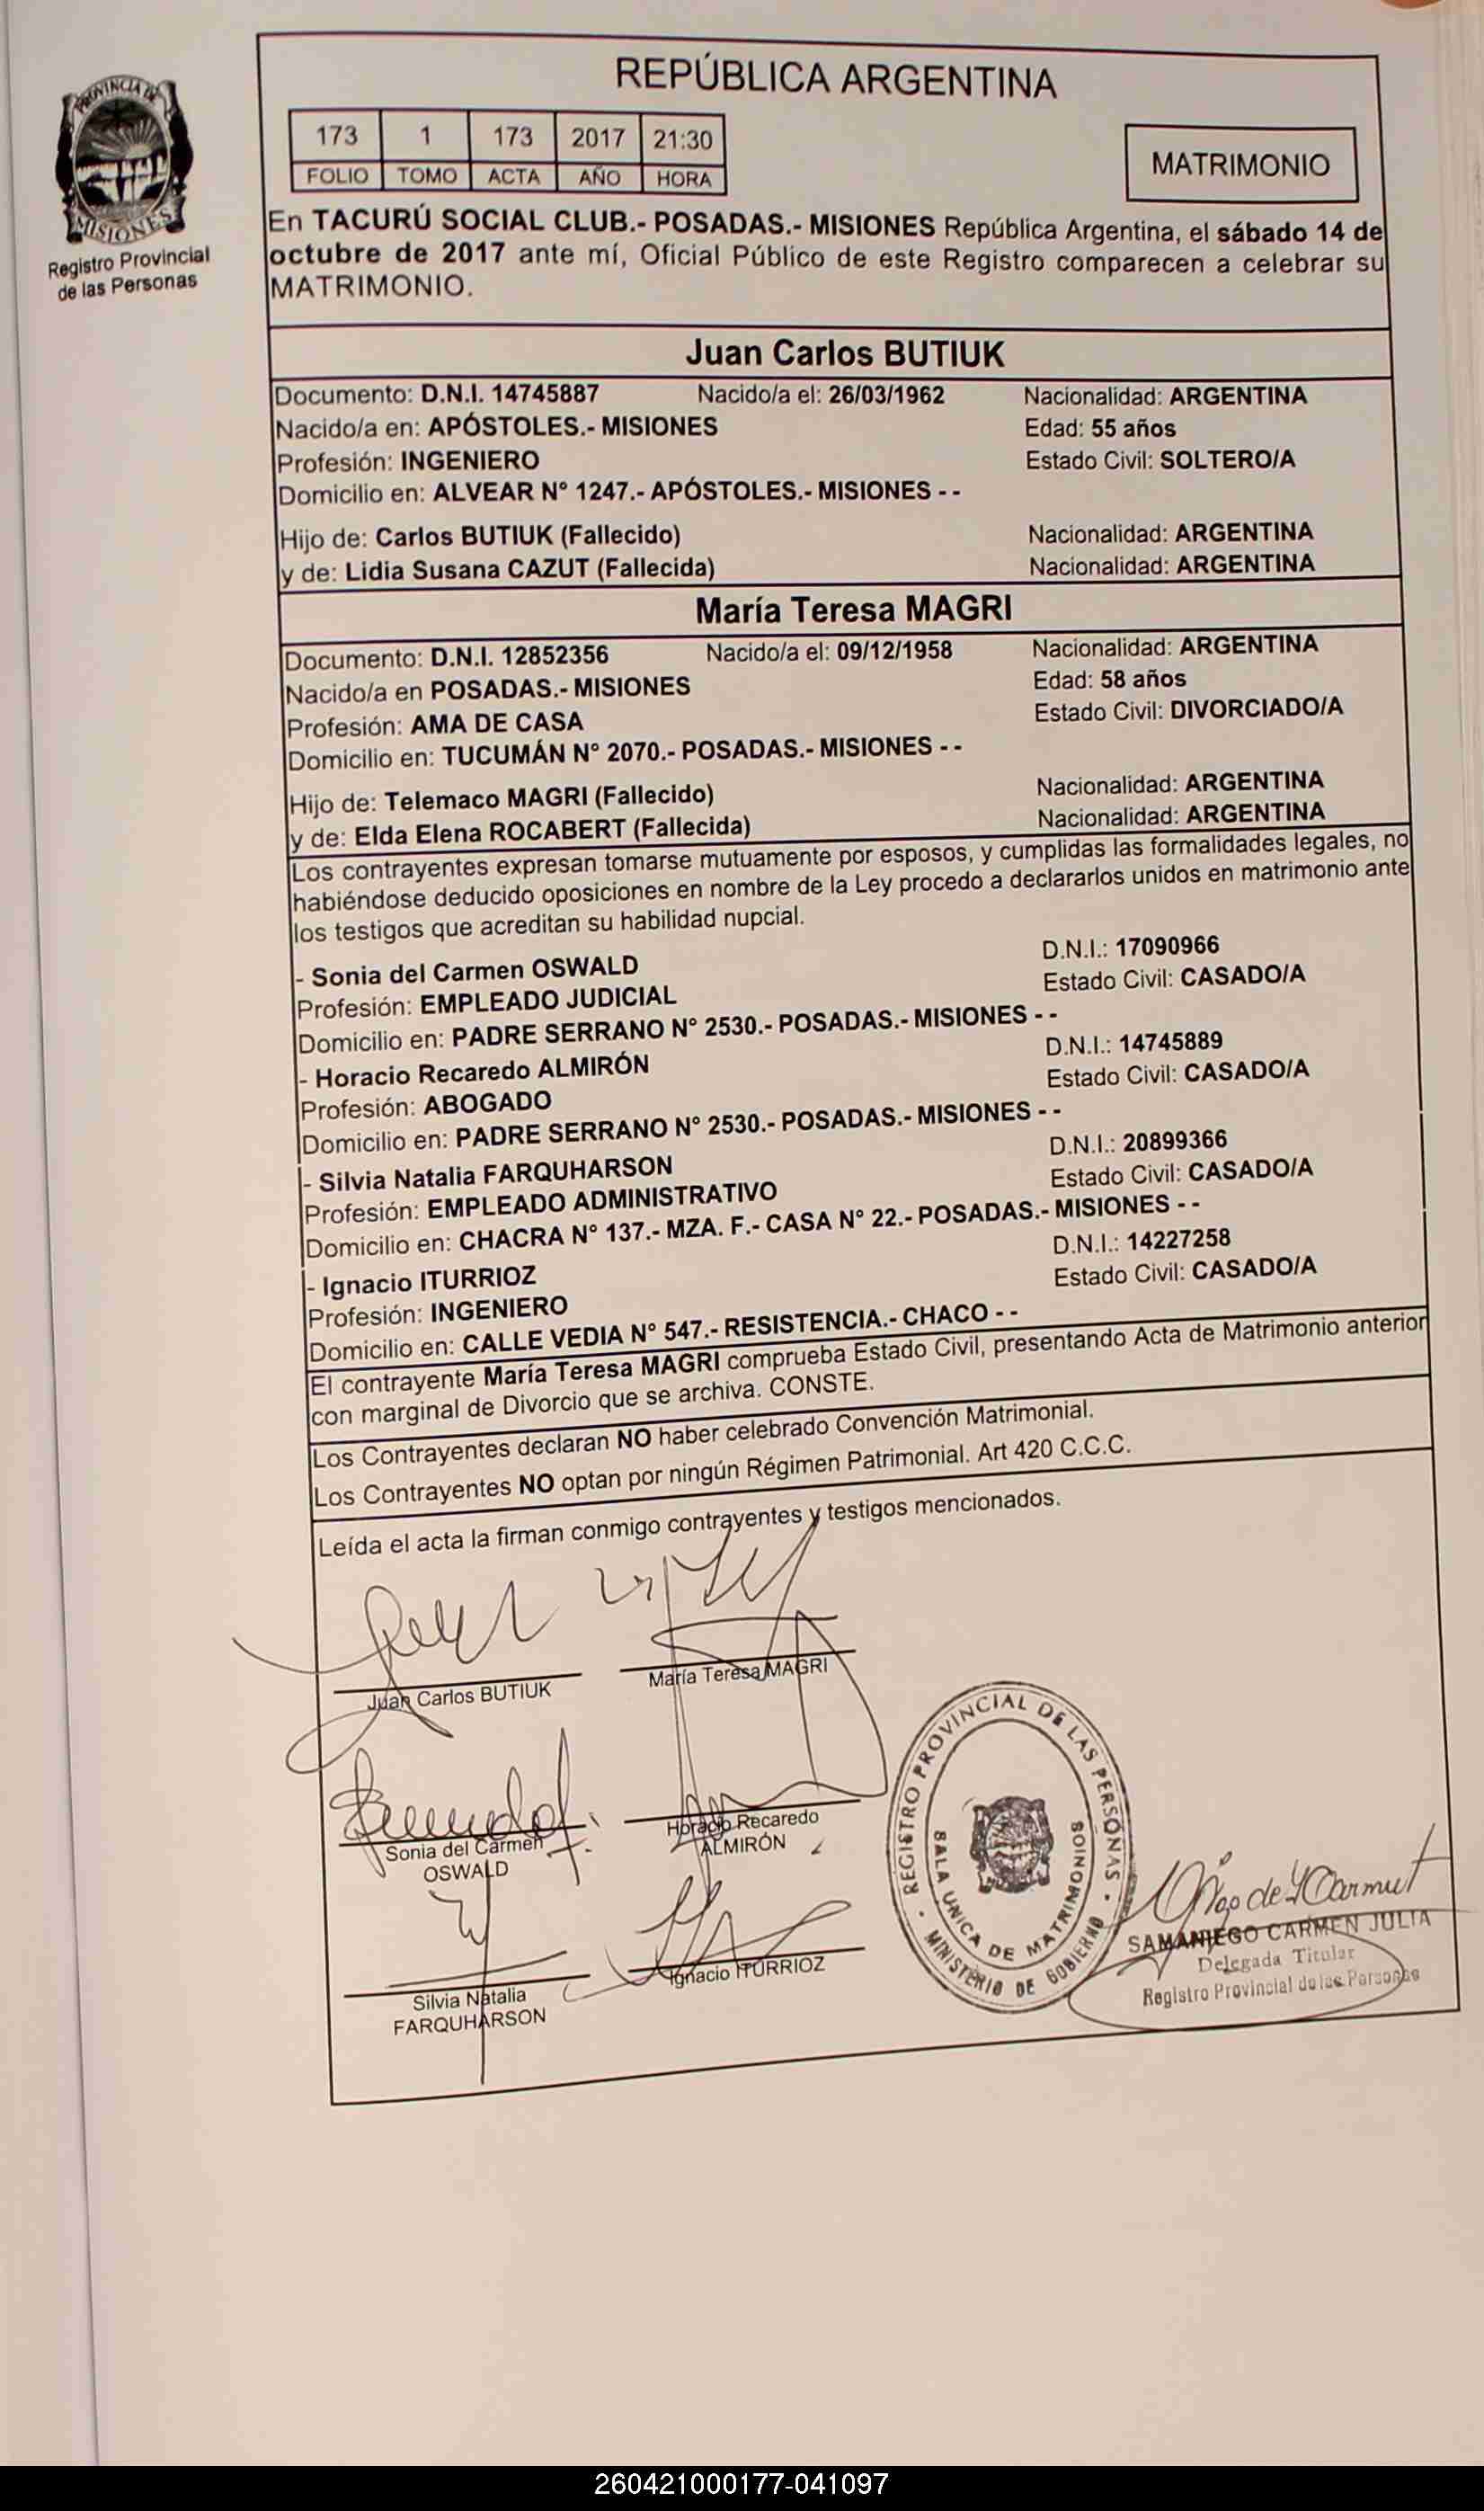 PROVINCIA DE
MISIONES
Registro Provincial
de las Personas
REPÚBLICA ARGENTINA
173 1 173 2017 21:30
FOLIO TOMO ACTA AÑO HORA
MATRIMONIO
En TACURÚ SOCIAL CLUB.- POSADAS.- MISIONES República Argentina, el sábado 14 de
octubre de 2017 ante mí, Oficial Público de este Registro comparecen a celebrar su
MATRIMONIO.
Juan Carlos BUTIUK
Documento: D.N.I. 14745887 Nacido/a el: 26/03/1962 Nacionalidad: ARGENTINA
Nacido/a en: APÓSTOLES.- MISIONES Edad: 55 años
Profesión: INGENIERO Estado Civil: SOLTERO/A
Domicilio en: ALVEAR N° 1247.- APÓSTOLES.- MISIONES - -
Hijo de: Carlos BUTIUK (Fallecido) Nacionalidad: ARGENTINA
y de: Lidia Susana CAZUT (Fallecida) Nacionalidad: ARGENTINA
María Teresa MAGRI
Documento: D.N.I. 12852356 Nacido/a el: 09/12/1958 Nacionalidad: ARGENTINA
Nacido/a en POSADAS.- MISIONES Edad: 58 años
Profesión: AMA DE CASA Estado Civil: DIVORCIADO/A
Domicilio en: TUCUMÁN N° 2070.- POSADAS.- MISIONES - -
Hijo de: Telemaco MAGRI (Fallecido) Nacionalidad: ARGENTINA
y de: Elda Elena ROCABERT (Fallecida) Nacionalidad: ARGENTINA
Los contrayentes expresan tomarse mutuamente por esposos, y cumplidas las formalidades legales, no
habiéndose deducido oposiciones en nombre de la Ley procedo a declararlos unidos en matrimonio ante
los testigos que acreditan su habilidad nupcial.
- Sonia del Carmen OSWALD D.N.I.: 17090966
Profesión: EMPLEADO JUDICIAL Estado Civil: CASADO/A
Domicilio en: PADRE SERRANO N° 2530.- POSADAS.- MISIONES - -
- Horacio Recaredo ALMIRÓN D.N.I.: 14745889
Profesión: ABOGADO Estado Civil: CASADO/A
Domicilio en: PADRE SERRANO N° 2530.- POSADAS.- MISIONES - -
- Silvia Natalia FARQUHARSON D.N.I.: 20899366
Profesión: EMPLEADO ADMINISTRATIVO Estado Civil: CASADO/A
Domicilio en: CHACRA N° 137.- MZA. F.- CASA N° 22.- POSADAS.- MISIONES - -
- Ignacio ITURRIOZ D.N.I.: 14227258
Profesión: INGENIERO Estado Civil: CASADO/A
Domicilio en: CALLE VEDIA N° 547.- RESISTENCIA.- CHACO - -
El contrayente María Teresa MAGRI comprueba Estado Civil, presentando Acta de Matrimonio anterior
con marginal de Divorcio que se archiva. CONSTE.
Los Contrayentes declaran NO haber celebrado Convención Matrimonial.
Los Contrayentes NO optan por ningún Régimen Patrimonial. Art 420 C.C.C.
Leída el acta la firman conmigo contrayentes y testigos mencionados.
Juan Carlos BUTIUK María Teresa MAGRI
Sonia del Carmen
OSWALD
Horacio Recaredo
ALMIRÓN
Silvia Natalia
FARQUHARSON
Ignacio ITURRIOZ
REGISTRO PROVINCIAL DE LAS PERSONAS
SALA UNICA DE MATRIMONIOS
MINISTERIO DE GOBIERNO
SAMANIEGO CARMEN JULIA
Delegada Titular
Registro Provincial de las Personas
260421000177-041097